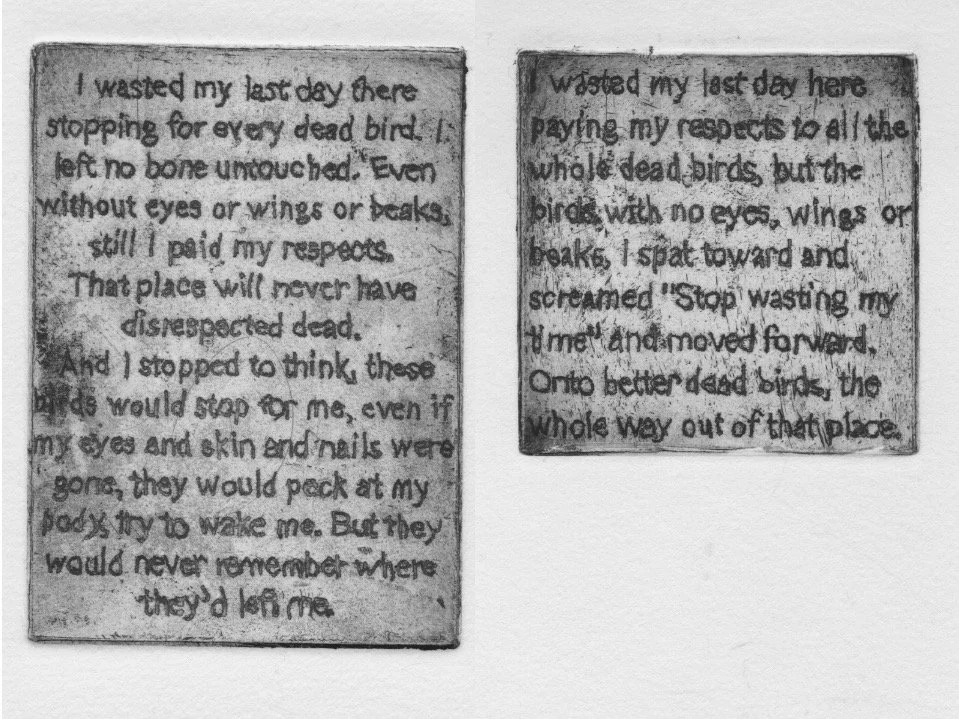 I wasted my last day there
stopping for every dead bird. I
left no bone untouched. Even
without eyes or wings or beaks,
still I paid my respects.
That place will never have
disrespected dead.
And I stopped to think, these
birds would stop for me, even if
my eyes and skin and nails were
gone, they would peck at my
body, try to wake me. But they
would never remember where
they'd left me.
I wasted my last day here
paying my respects to all the
whole dead birds, but the
birds with no eyes, wings or
beaks, I spat toward and
screamed "Stop wasting my
time" and moved forward.
Onto better dead birds, the
whole way out of that place.